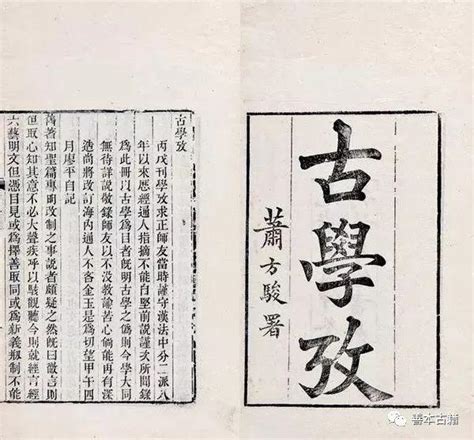 古學攷
蕭方駿署
古學攷
丙戌刊學攷求正師友當時謹守漢法中分二派八
年以來歷經通人指摘不能自堅前說謹次所聞錄
為此冊以古學為目者既明古學之偽則今學大同
無待詳說敬錄師友以不沒教諭苦心倘能再有深
造尚將改訂海內通人不吝金玉是為切望甲午四
月廖平自記
舊著知聖篇專明改制之事說者頗疑之然既曰微言
但取心知其意不必大聲疾呼以駭觀聽今則就經言經
六藝明文但憑目見或為擇善取同或為新義創制不能
善本古籍